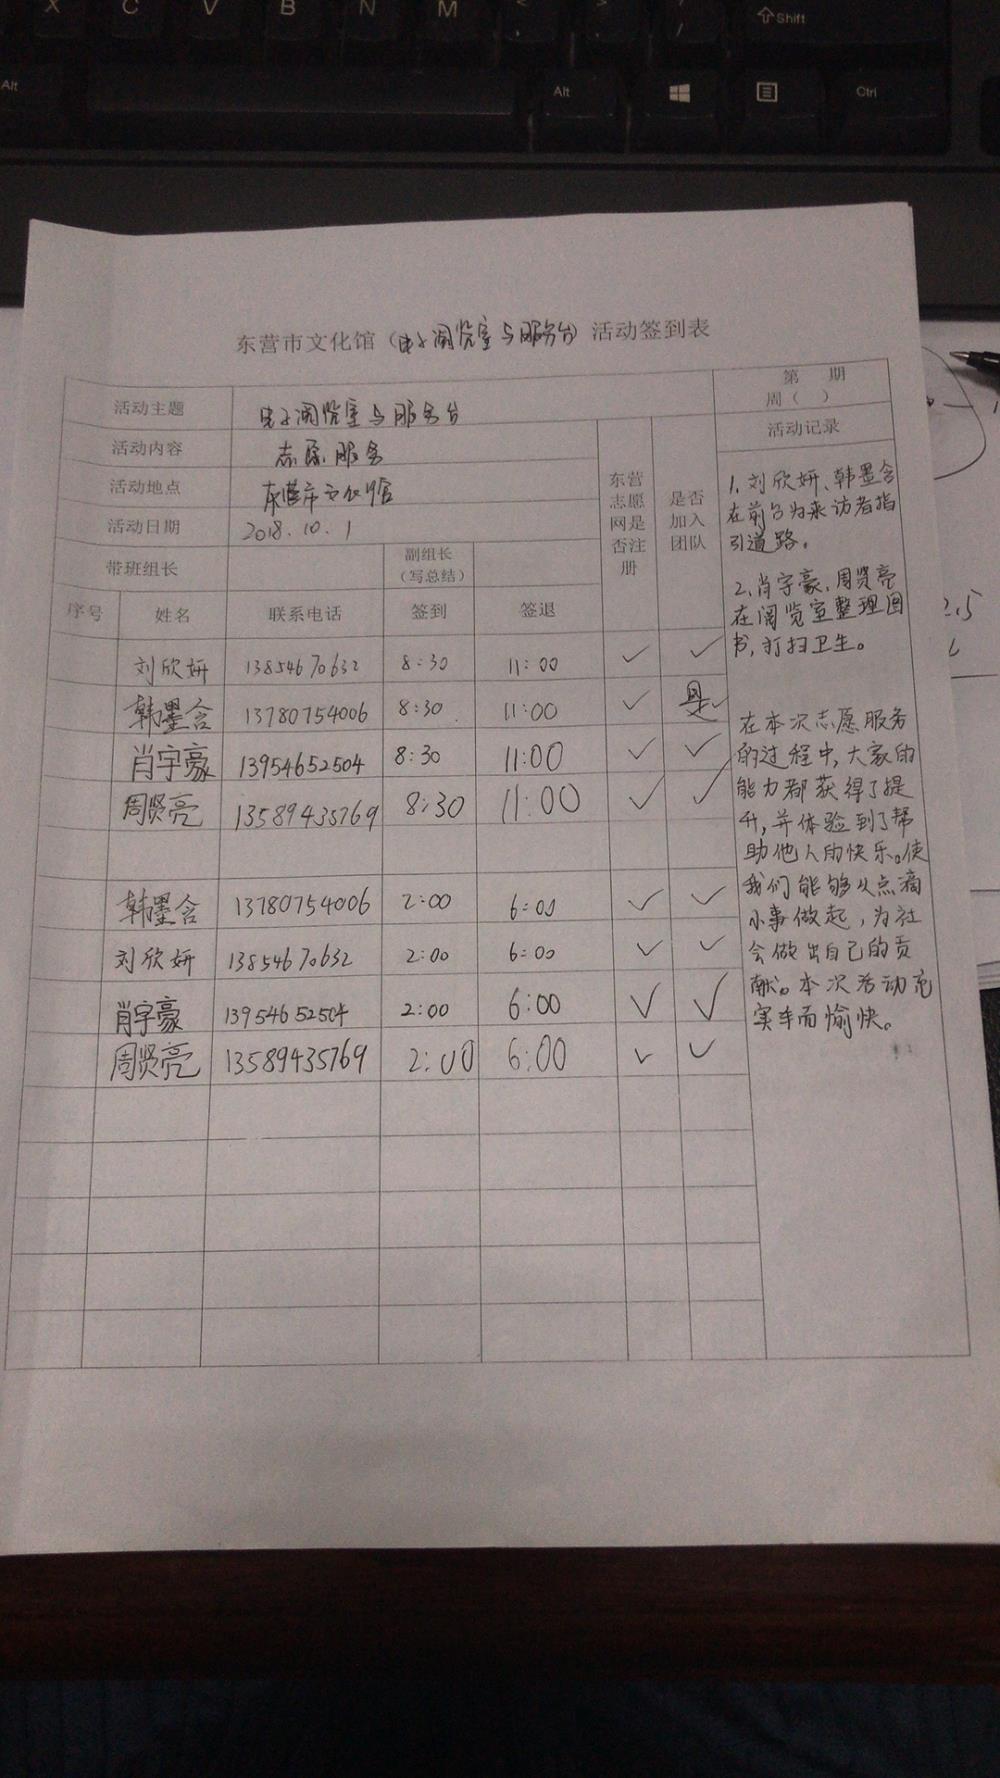 X C V B N M < > / Shift
Alt Alt Ctrl
东营市文化馆（电子阅览室与服务台）活动签到表
活动主题 电子阅览室与服务台 第 期
周（ ）
活动内容 志愿服务 东营志愿网是否注册 是否加入团队 活动记录
活动地点 东营市文化馆
活动日期 2018.10.1
带班组长 副组长（写总结）
序号 姓名 联系电话 签到 签退
刘欣妍 13854670632 8:30 11:00 ✓ ✓
韩墨含 13780754006 8:30 11:00 ✓ 是✓
肖宇豪 13954652504 8:30 11:00 ✓ ✓
周贤亮 13589435769 8:30 11:00 ✓ ✓
韩墨含 13780754006 2:00 6:00 ✓ ✓
刘欣妍 13854670632 2:00 6:00 ✓ ✓
肖宇豪 13954652504 2:00 6:00 ✓ ✓
周贤亮 13589435769 2:00 6:00 ✓ ✓
1、刘欣妍、韩墨含
在前台为来访者指
引道路。
2、肖宇豪、周贤亮
在阅览室整理图
书,打扫卫生。
在本次志愿服务
的过程中,大家的
能力都获得了提
升,并体验到了帮
助他人的快乐。使
我们能够从点滴
小事做起,为社
会做出自己的贡
献。本次活动充
实而愉快。
2.5